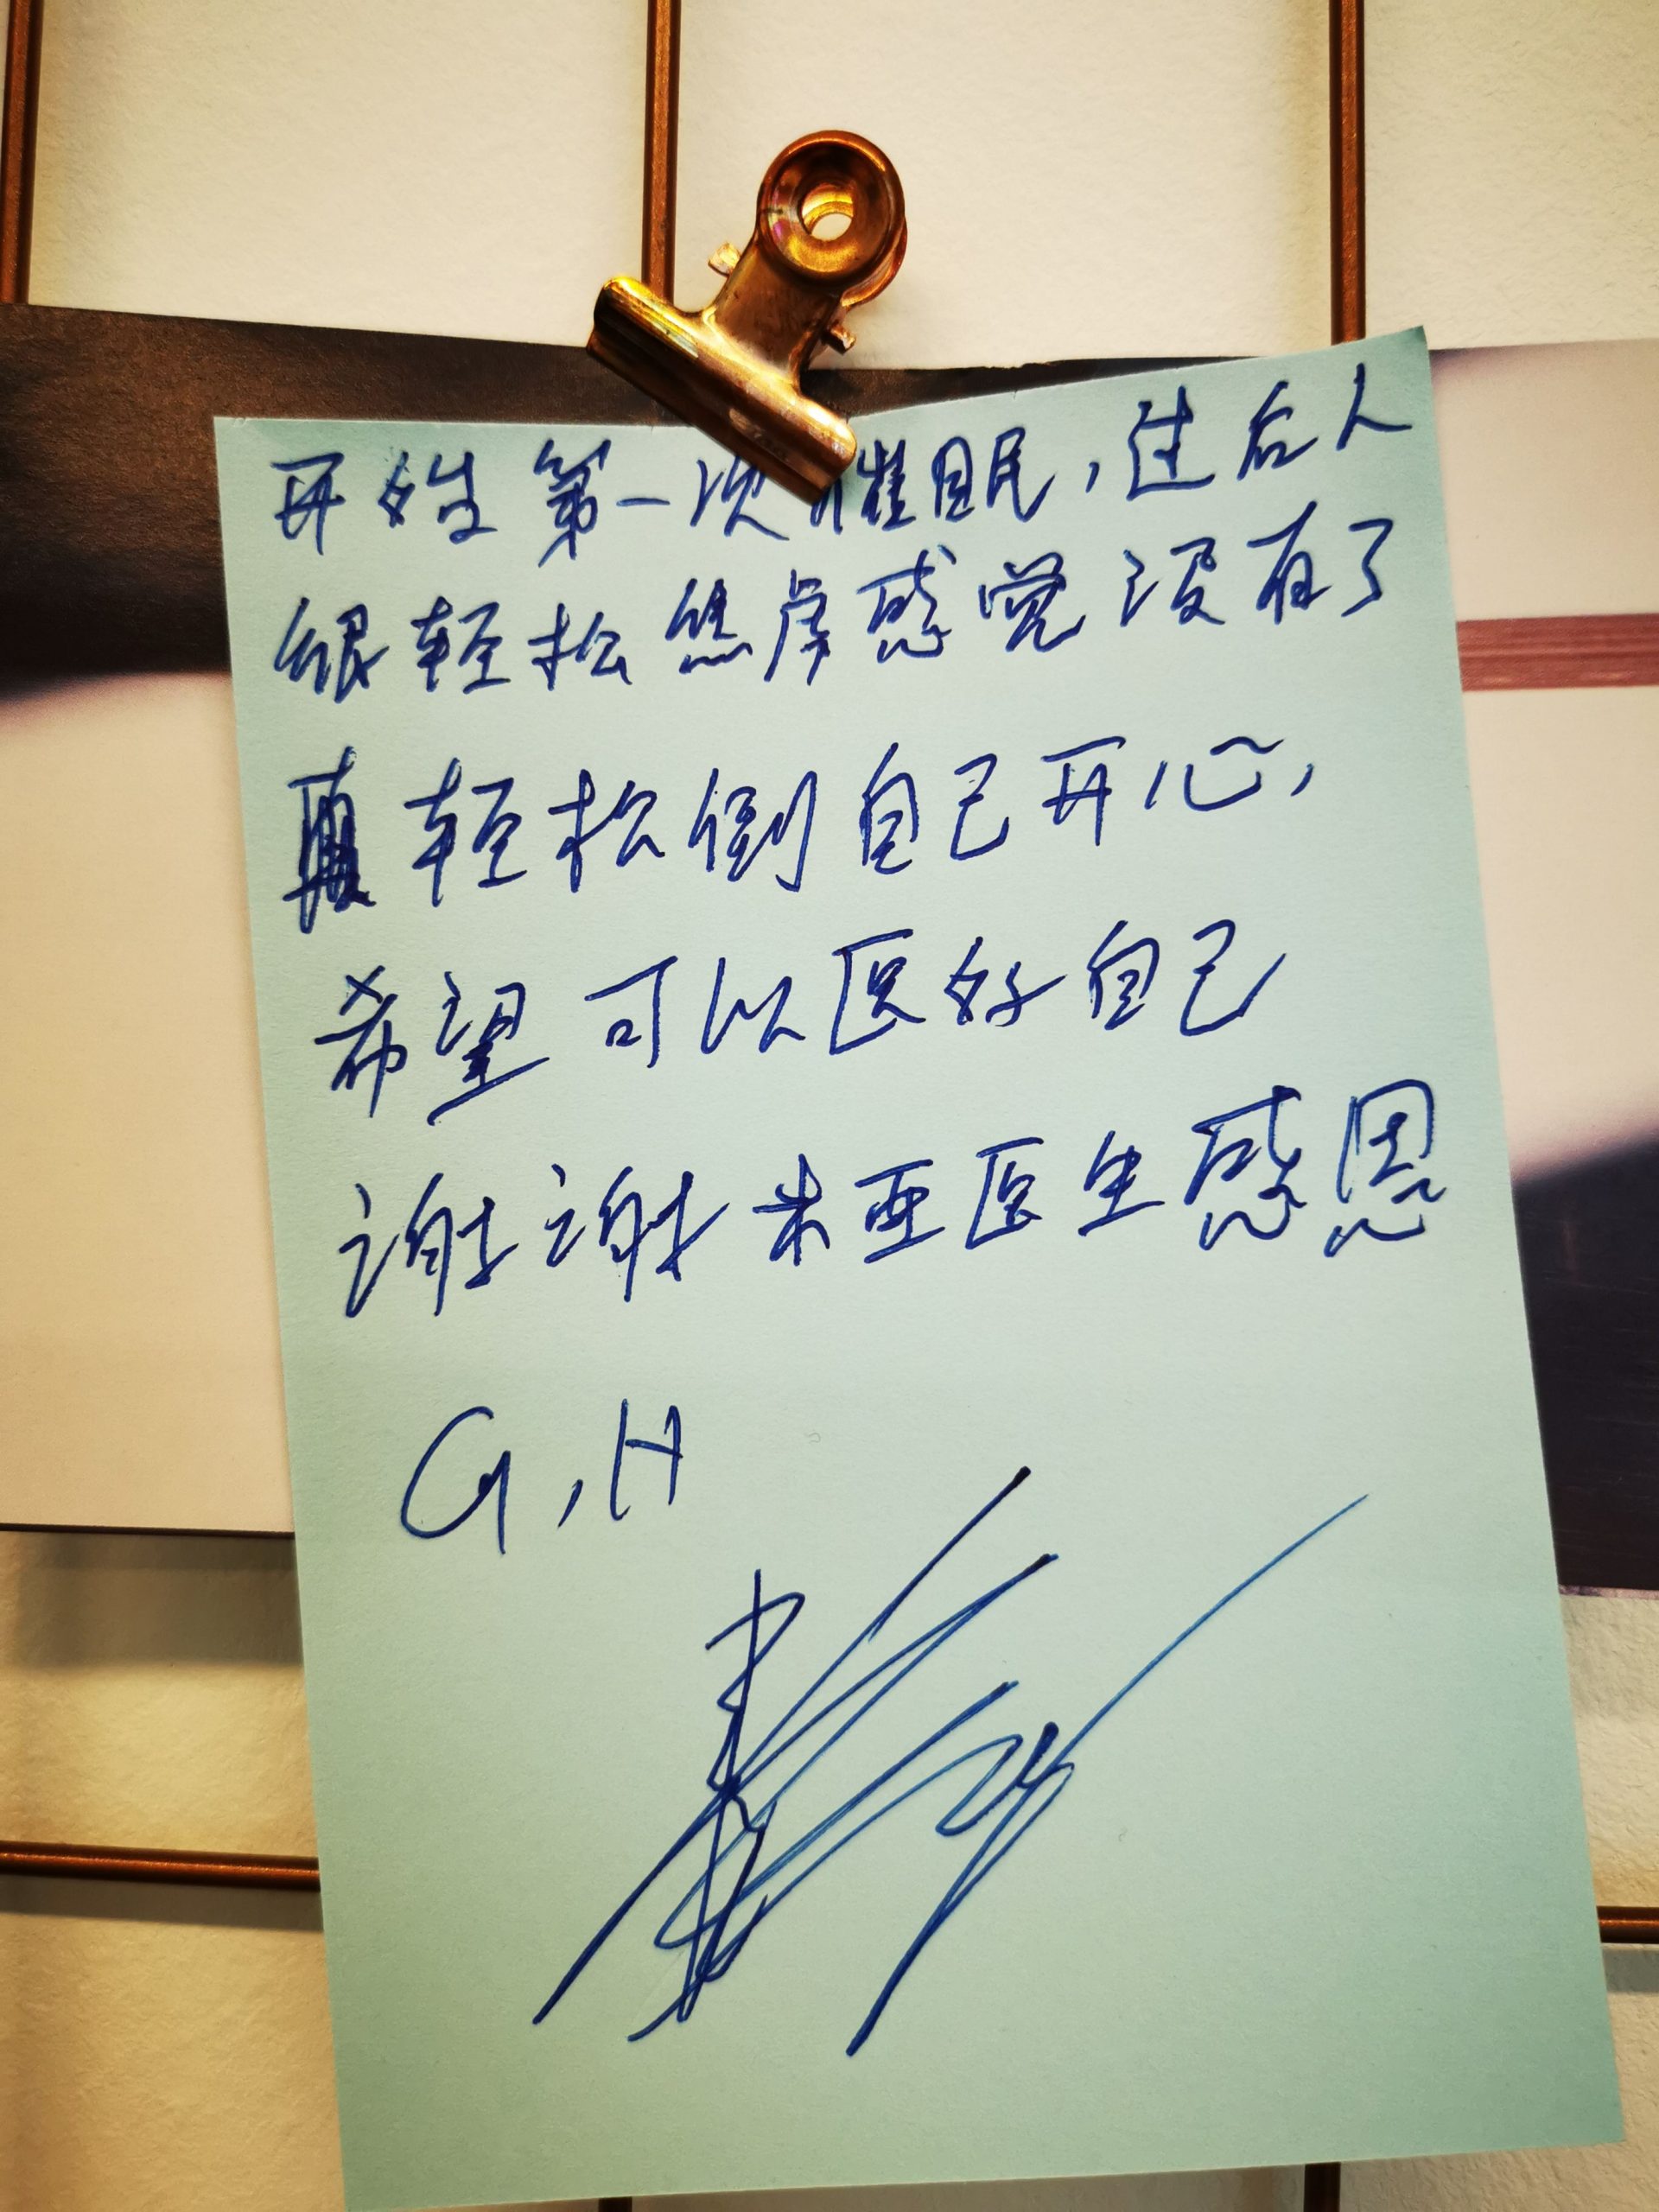 开始第一次催眠，过后人
很轻松焦虑感觉没有了
真轻松倒自己开心，
希望可以医好自己
谢谢米亚医生感恩
G,H